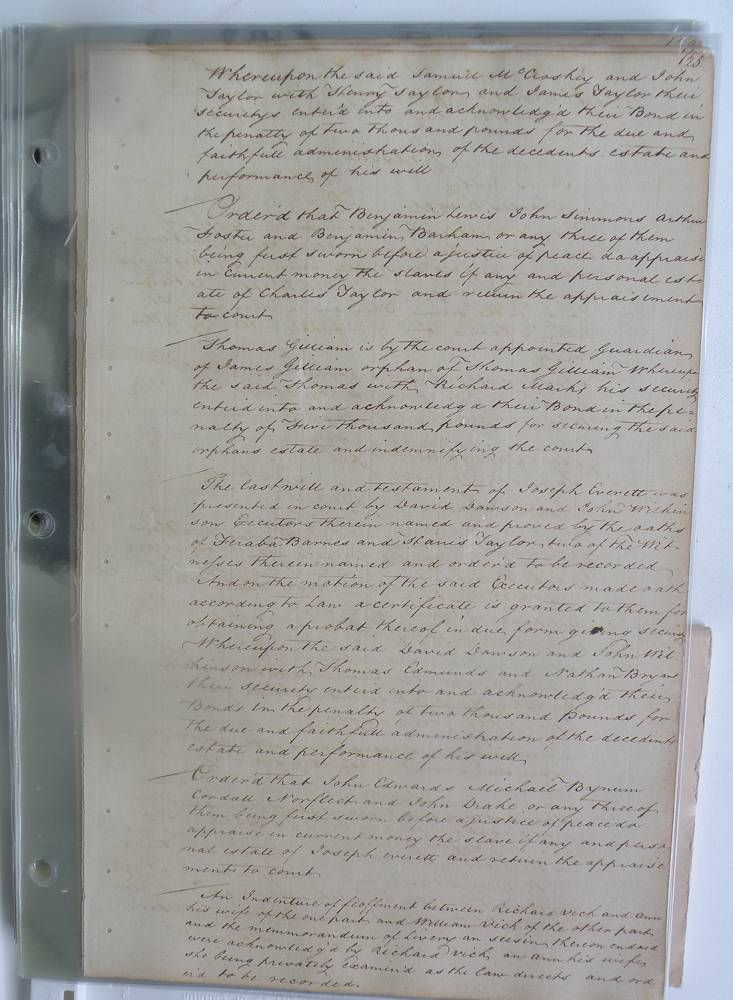 123
Whereupon the said Samuel McCroskey and John
Taylor with Henry Taylor and James Taylor their
securitys enter'd into and acknowledg'd their Bond in
the penalty of two thousand pounds for the due and
faithfull administration of the decedents estate and
performance of his will
Order'd that Benjamin Lewis John Simmons Arthur
Foster and Benjamin Barham or any three of them
being first sworn before a justice of peace do appraise
in Current money the slaves if any and personal est-
ate of Charles Taylor and return the appraisement
to court
Thomas Gilliam is by the court appointed Guardian
of James Gilliam orphan of Thomas Gilliam Whereup-
the said Thomas with Richard Marks his security
enter'd into and acknowledg'd their Bond in the pe=
nalty of Five thousand pounds for securing the said
orphans estate and indemnifying the court
The last will and testament of Joseph Everett was
presented in court by David Dawson and John Wilkin
son Executors therein named and proved by the oaths
of Feraba Barnes and Taylor two of the Wit-
nesses therein named and order'd to be recorded
And on the motion of the said Executors made oath
according to Law a certificate is granted to them for
obtaining a probat thereof in due form giving security
Whereupon the said David Dawson and John Wil
kinson with Thomas Edmunds and Nathan Bryan
their security enter'd into and acknowledg'd their
Bonds in the penalty of two thousand Pounds for
the due and faithfull administration of the decedents
estate and performance of his will
Order'd that John Edwards Michael Bynum
Cordall Norfleet and John Drake or any three of
them being first sworn before a justice of peace do
appraise in current money the slave if any and perso
nal estate of Joseph everett and return the appraise
ment to court
An Indenture of feoffment between Richard Vick and Ann
his wife of the one part and William Vick of the other part
and the memmorandum of Livery an seisin thereon endors'd
were acknowledg'd by Richard Vick an Ann his wife
she being privately examin'd as the law directs and ord
er'd to be recorded.